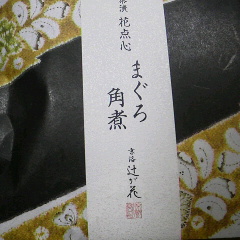 花点心
まぐろ
角煮
京洛
辻が花